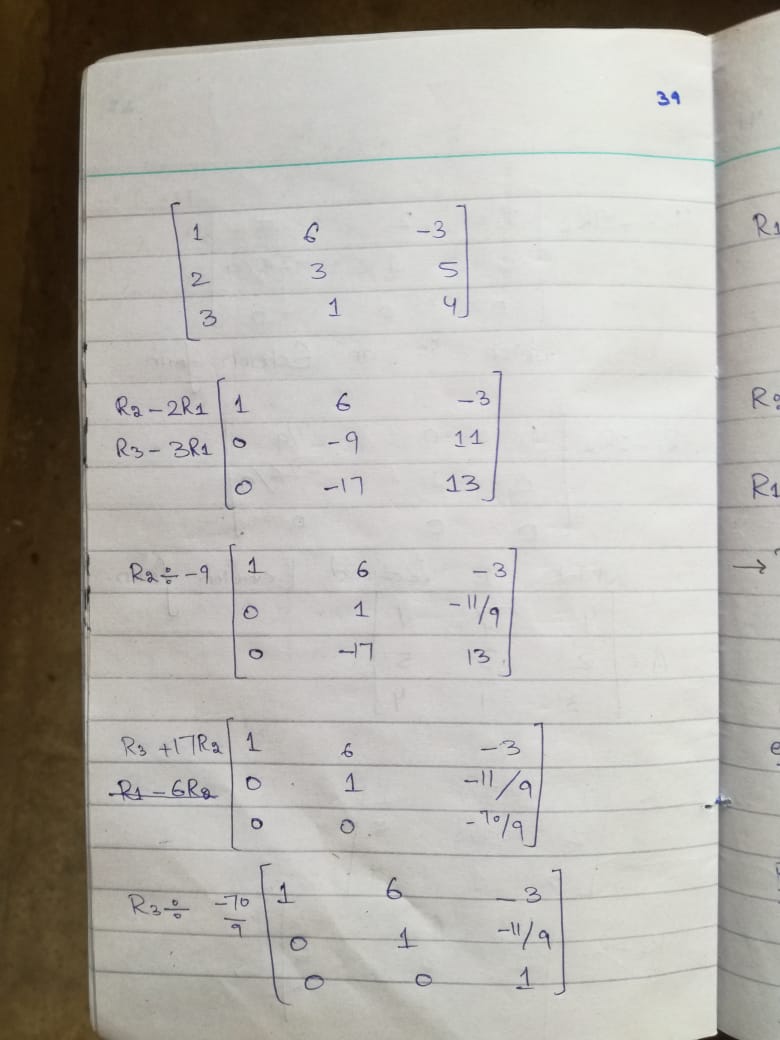 39
1 6 -3
2 3 5
3 1 4
R2 - 2R1 1 6 -3
R3 - 3R1 0 -9 11
0 -17 13
R2 ÷ -9 1 6 -3
0 1 -11/9
0 -17 13
R3 + 17R2 1 6 -3
R1 - 6R2 0 1 -11/9
0 0 -70/9
R3 ÷ -70/9 1 6 -3
0 1 -11/9
0 0 1
R1
R2
R1
→